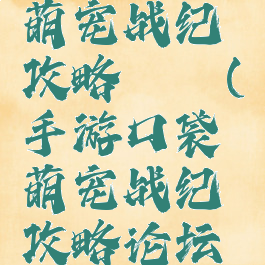 萌宠战纪
攻略 （
手游口袋
萌宠战纪
攻略论坛